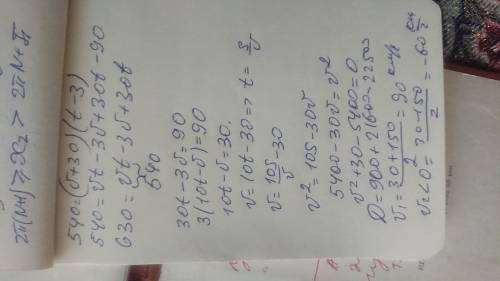 2π(N+1) ≥ x₂ > 2πN + π
540=(v+30)(t-3)
540=vt-3v+30t-90
630=vt-3v+30t
540
30t-3v=90
3(10t-v)=90
10t-v=30.
v=10t-30=> t= S/v
v=10S/v-30
v²=10S-30v
5400-30v=v²
v²+30-5400=0.
D=900+21600=22500
v₁=30+150/2=90 км/ч
v₂<0=30-150/2=-60 км/ч